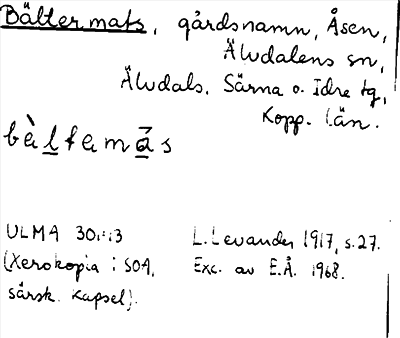 Bälter mats, gårdsnamn, Åsen,
Älvdalens sn,
Älvdals, Särna o. Idre tg,
Kopp. län.
bə̀ltemás
ULMA 301:13
(Xerokopia i SOA,
särsk. kapsel).
L. Levander 1917, s. 27.
Exc. av E.Å. 1968.